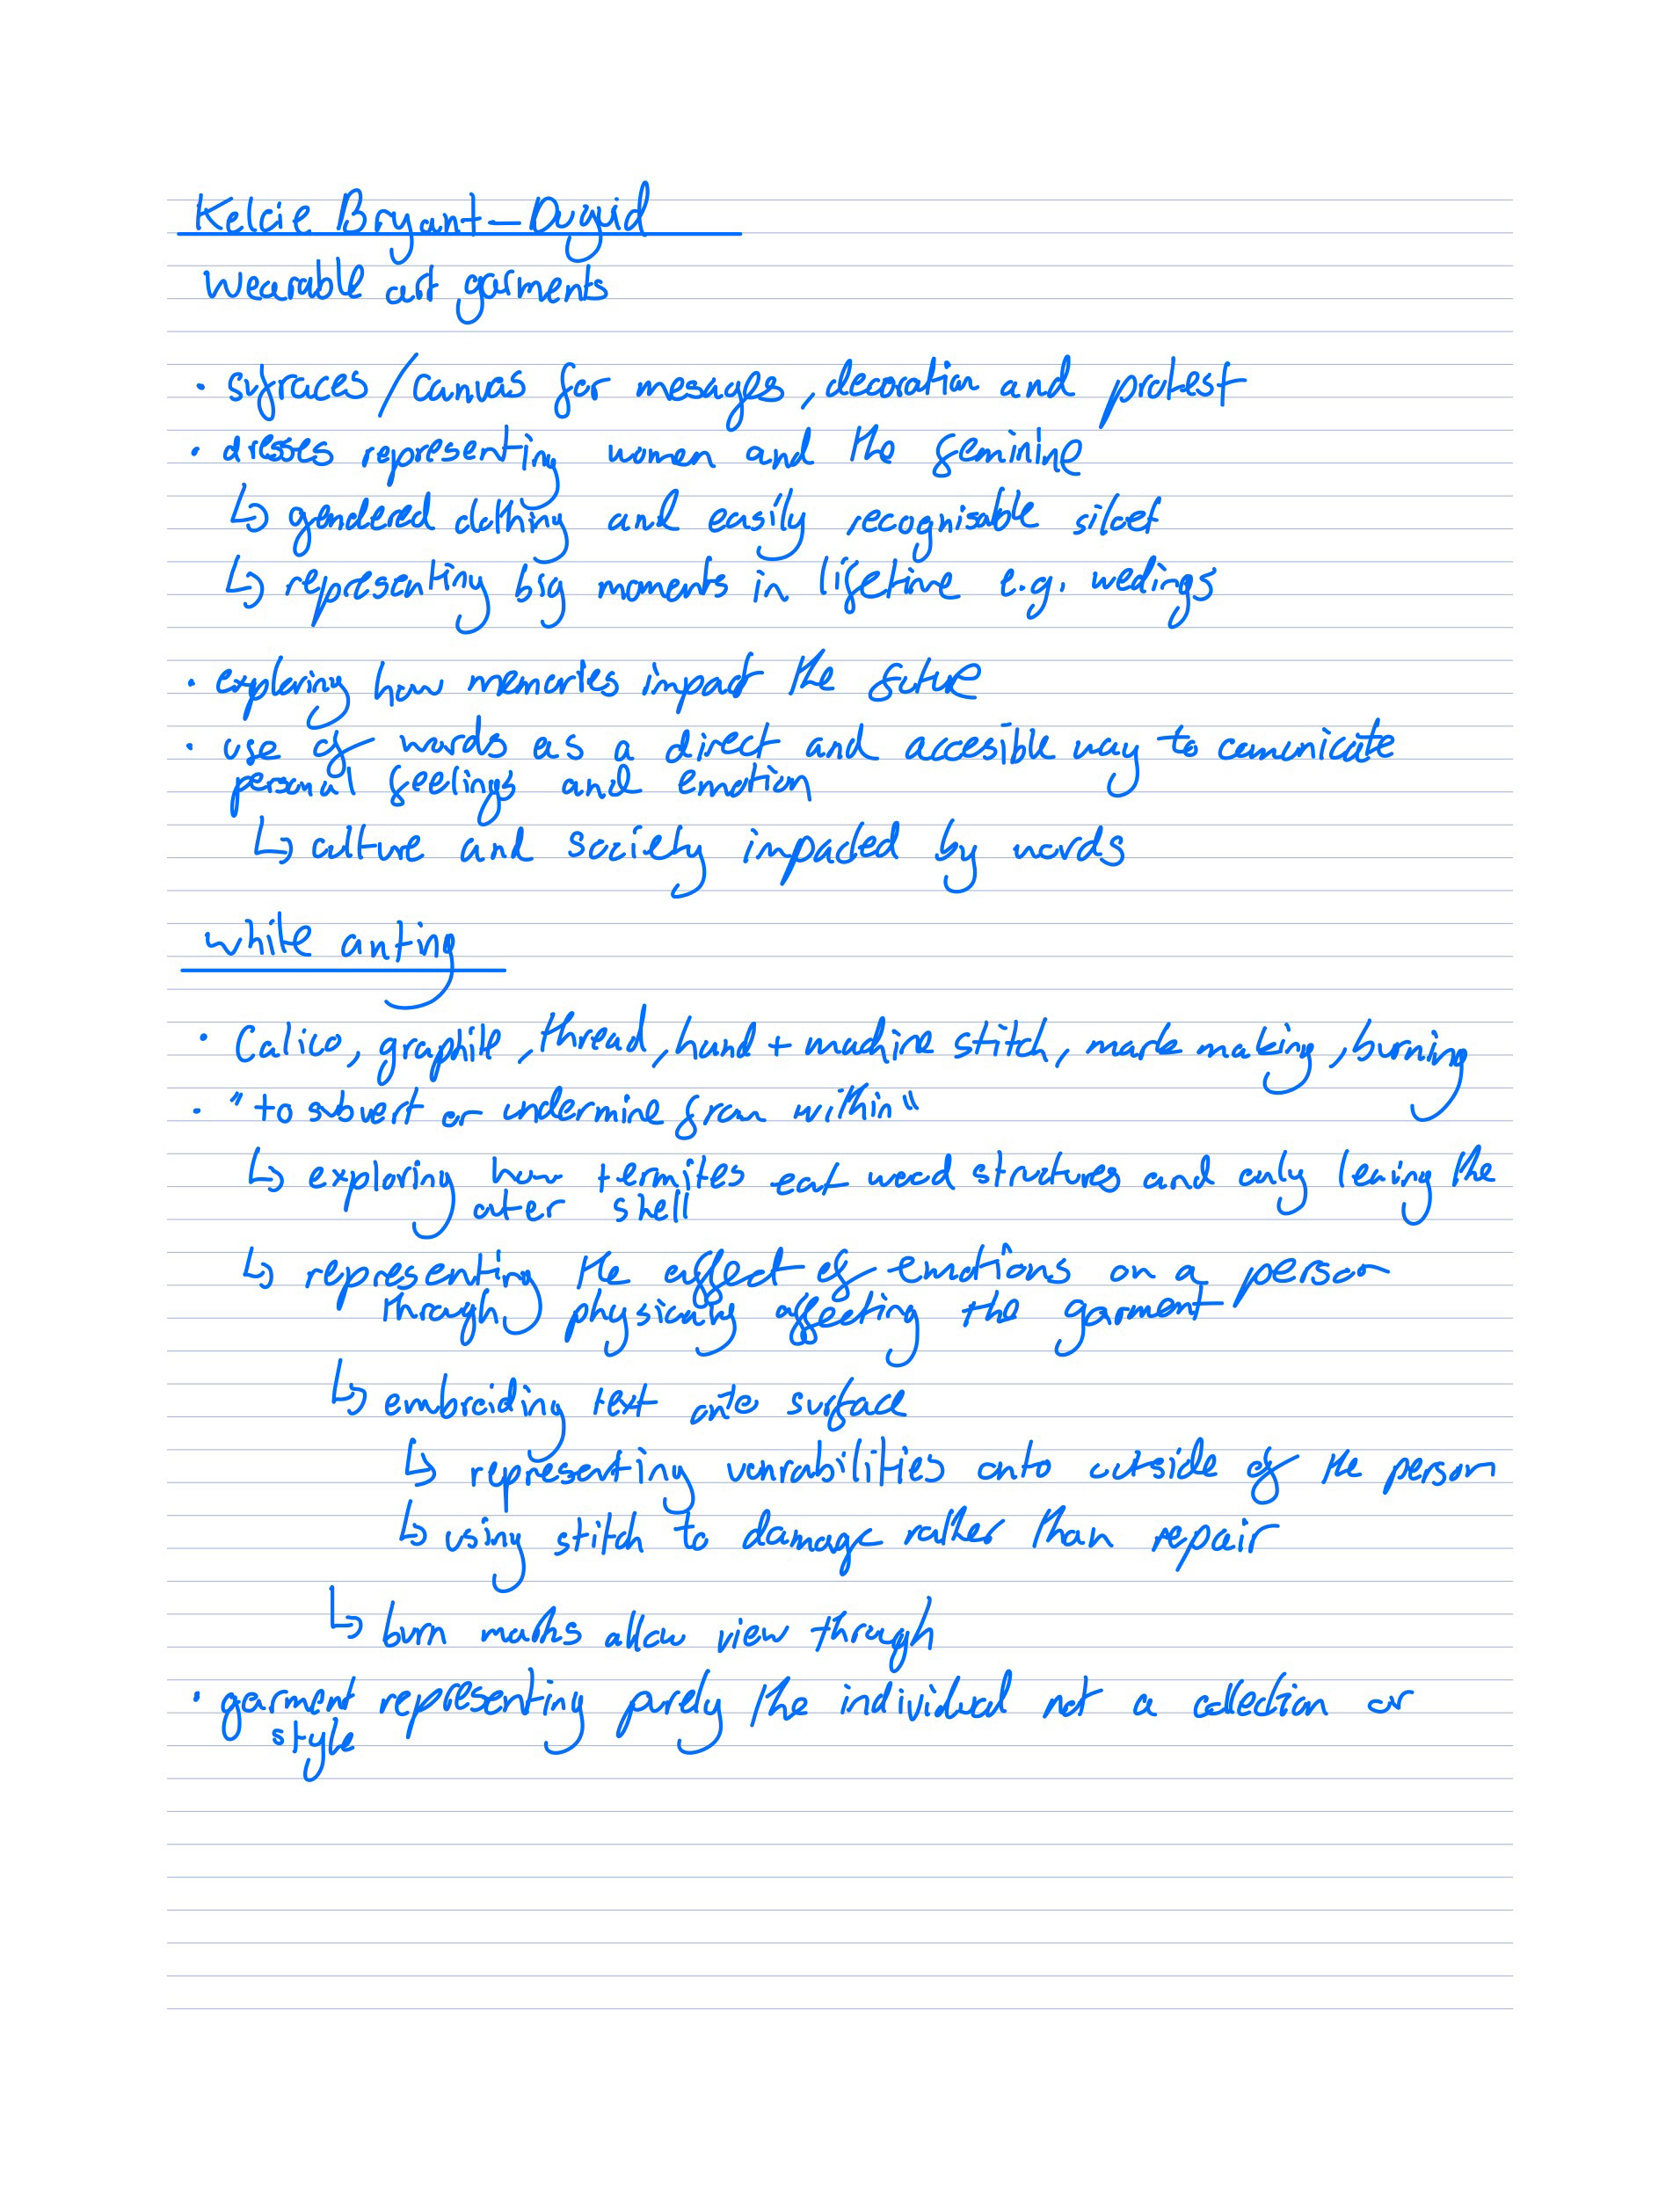 Kelcie Bryant-Duguid
Wearable art garments
· sufraces/canvas for mesages, decoration and protest
· dresses representing women and the feminine
↳ gendered clothing and easily recognisable siloet
↳ representing big moments in lifetime e.g. wedings
· exploring how memories impact the future
· use of words as a direct and accesible way to comunicate
personal feelings and emotion
↳ culture and society impacted by words
white anting
· Calico, graphite, thread, hand + machine stitch, mark making, burning
· "to subvert or undermine from within"
↳ exploring how termites eat wood structures and only leaving the
outer shell
↳ representing the effect of emotions on a person
through physically affecting the garment
↳ embroiding text onto surface
↳ representing vunrabilities onto outside of the person
↳ using stitch to damage rather than repair
↳ burn marks allow view through
· garment representing purely the individual not a collection or
style